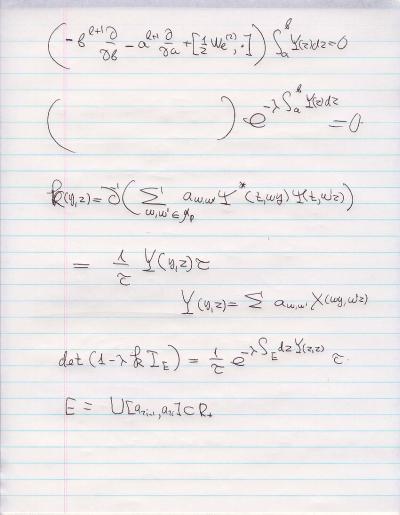 (-b^{ℓ+1} ∂/∂b - a^{ℓ+1} ∂/∂a + [½ W_ℓ^{(2)}, ·]) ∫_a^b Y(z)dz = 0
( ) e^{-λ∫_a^b Y(z)dz} = 0.
k(y,z) = ∂^{-1}(∑_{ω,ω'∈ζ_p} a_{ωω'} Ψ*(t,ωy) Ψ(t,ω'z))
= 1/τ Y(y,z)τ
Y(y,z) = ∑ a_{ω,ω'} X(ωy,ω'z)
det(1-λ k I_E) = 1/τ e^{-λ∫_E dz Y(z,z)} τ.
E = U[a_{2i-1}, a_{2i}] ⊂ R_+